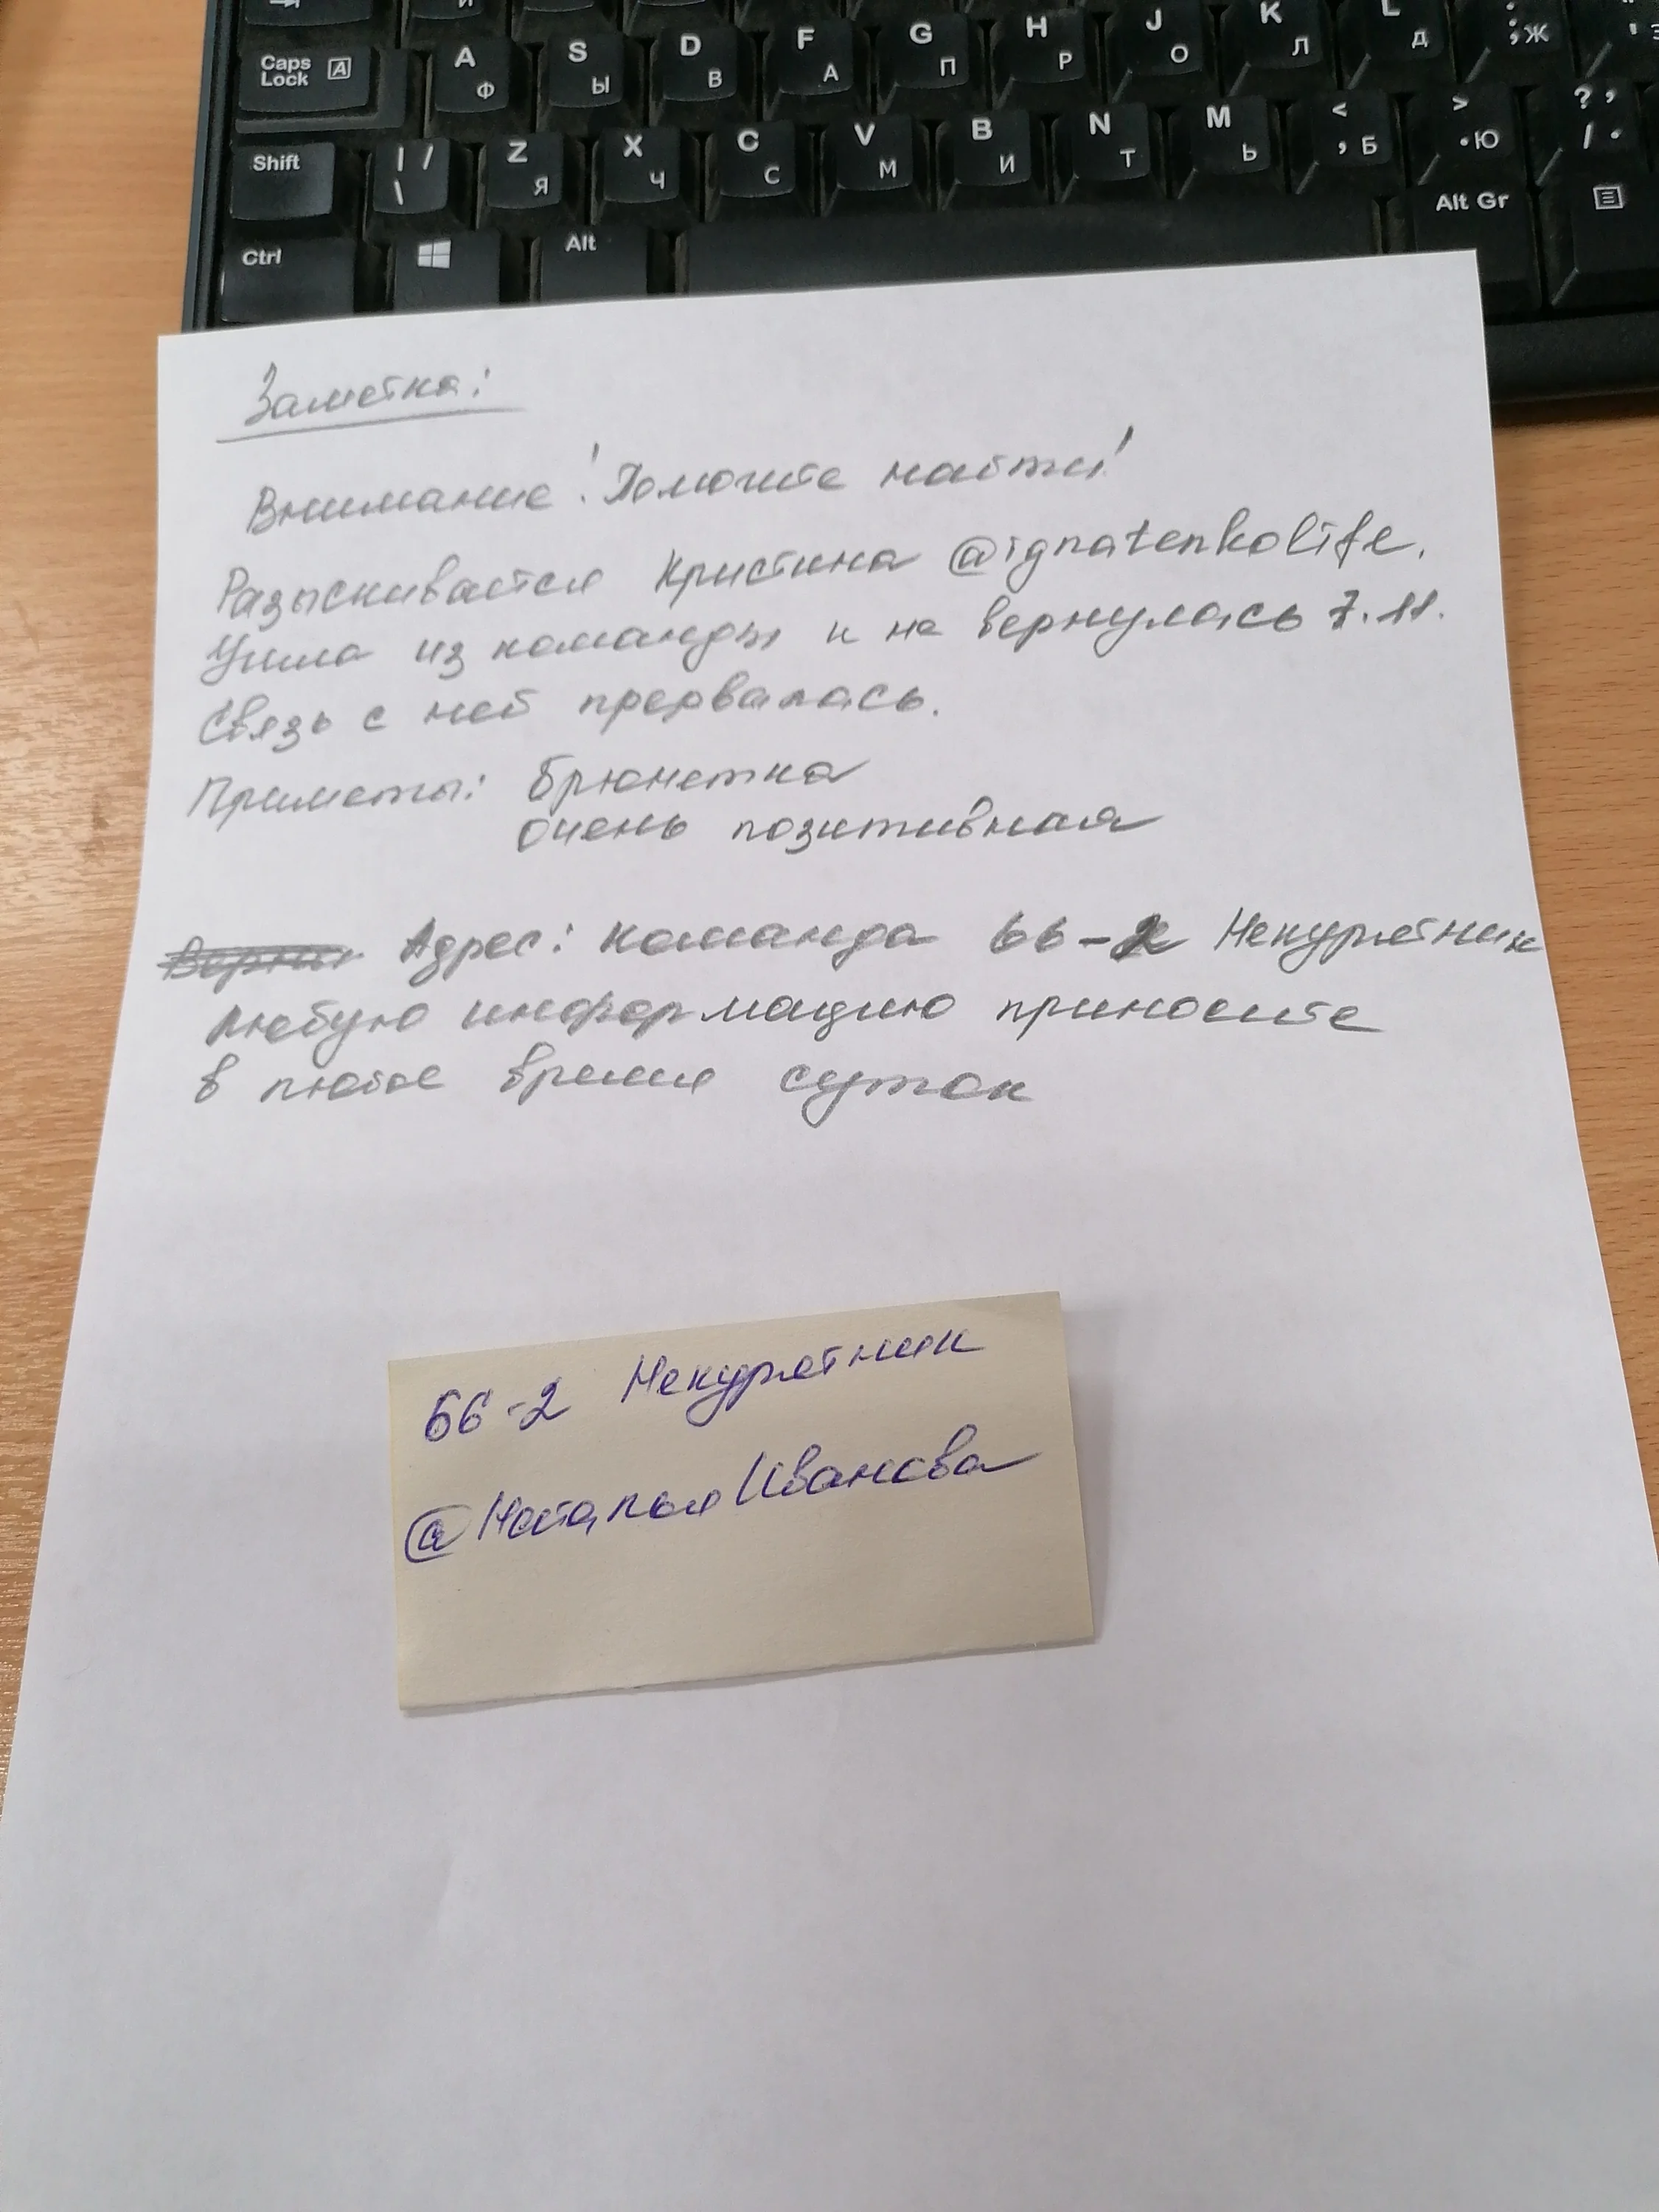 A Ф S Ы D В F А G П H Р J О K Л L Д ; Ж
Caps Lock A
Shift | / \ Z Я X Ч C С V М B И N Т M Ь < , Б > . Ю ? , / .
Ctrl Alt Alt Gr
Заметка:
Внимание! Помогите найти!
Разыскивается Кристина @ignatenkolife.
Ушла из команды и не вернулась 7.11.
Связь с ней прервалась.
Приметы: брюнетка
очень позитивная
Адрес: команда 66-2 Некурятник
Любую информацию приносите
в любое время суток
66-2 Некурятник
@НатальяИванова